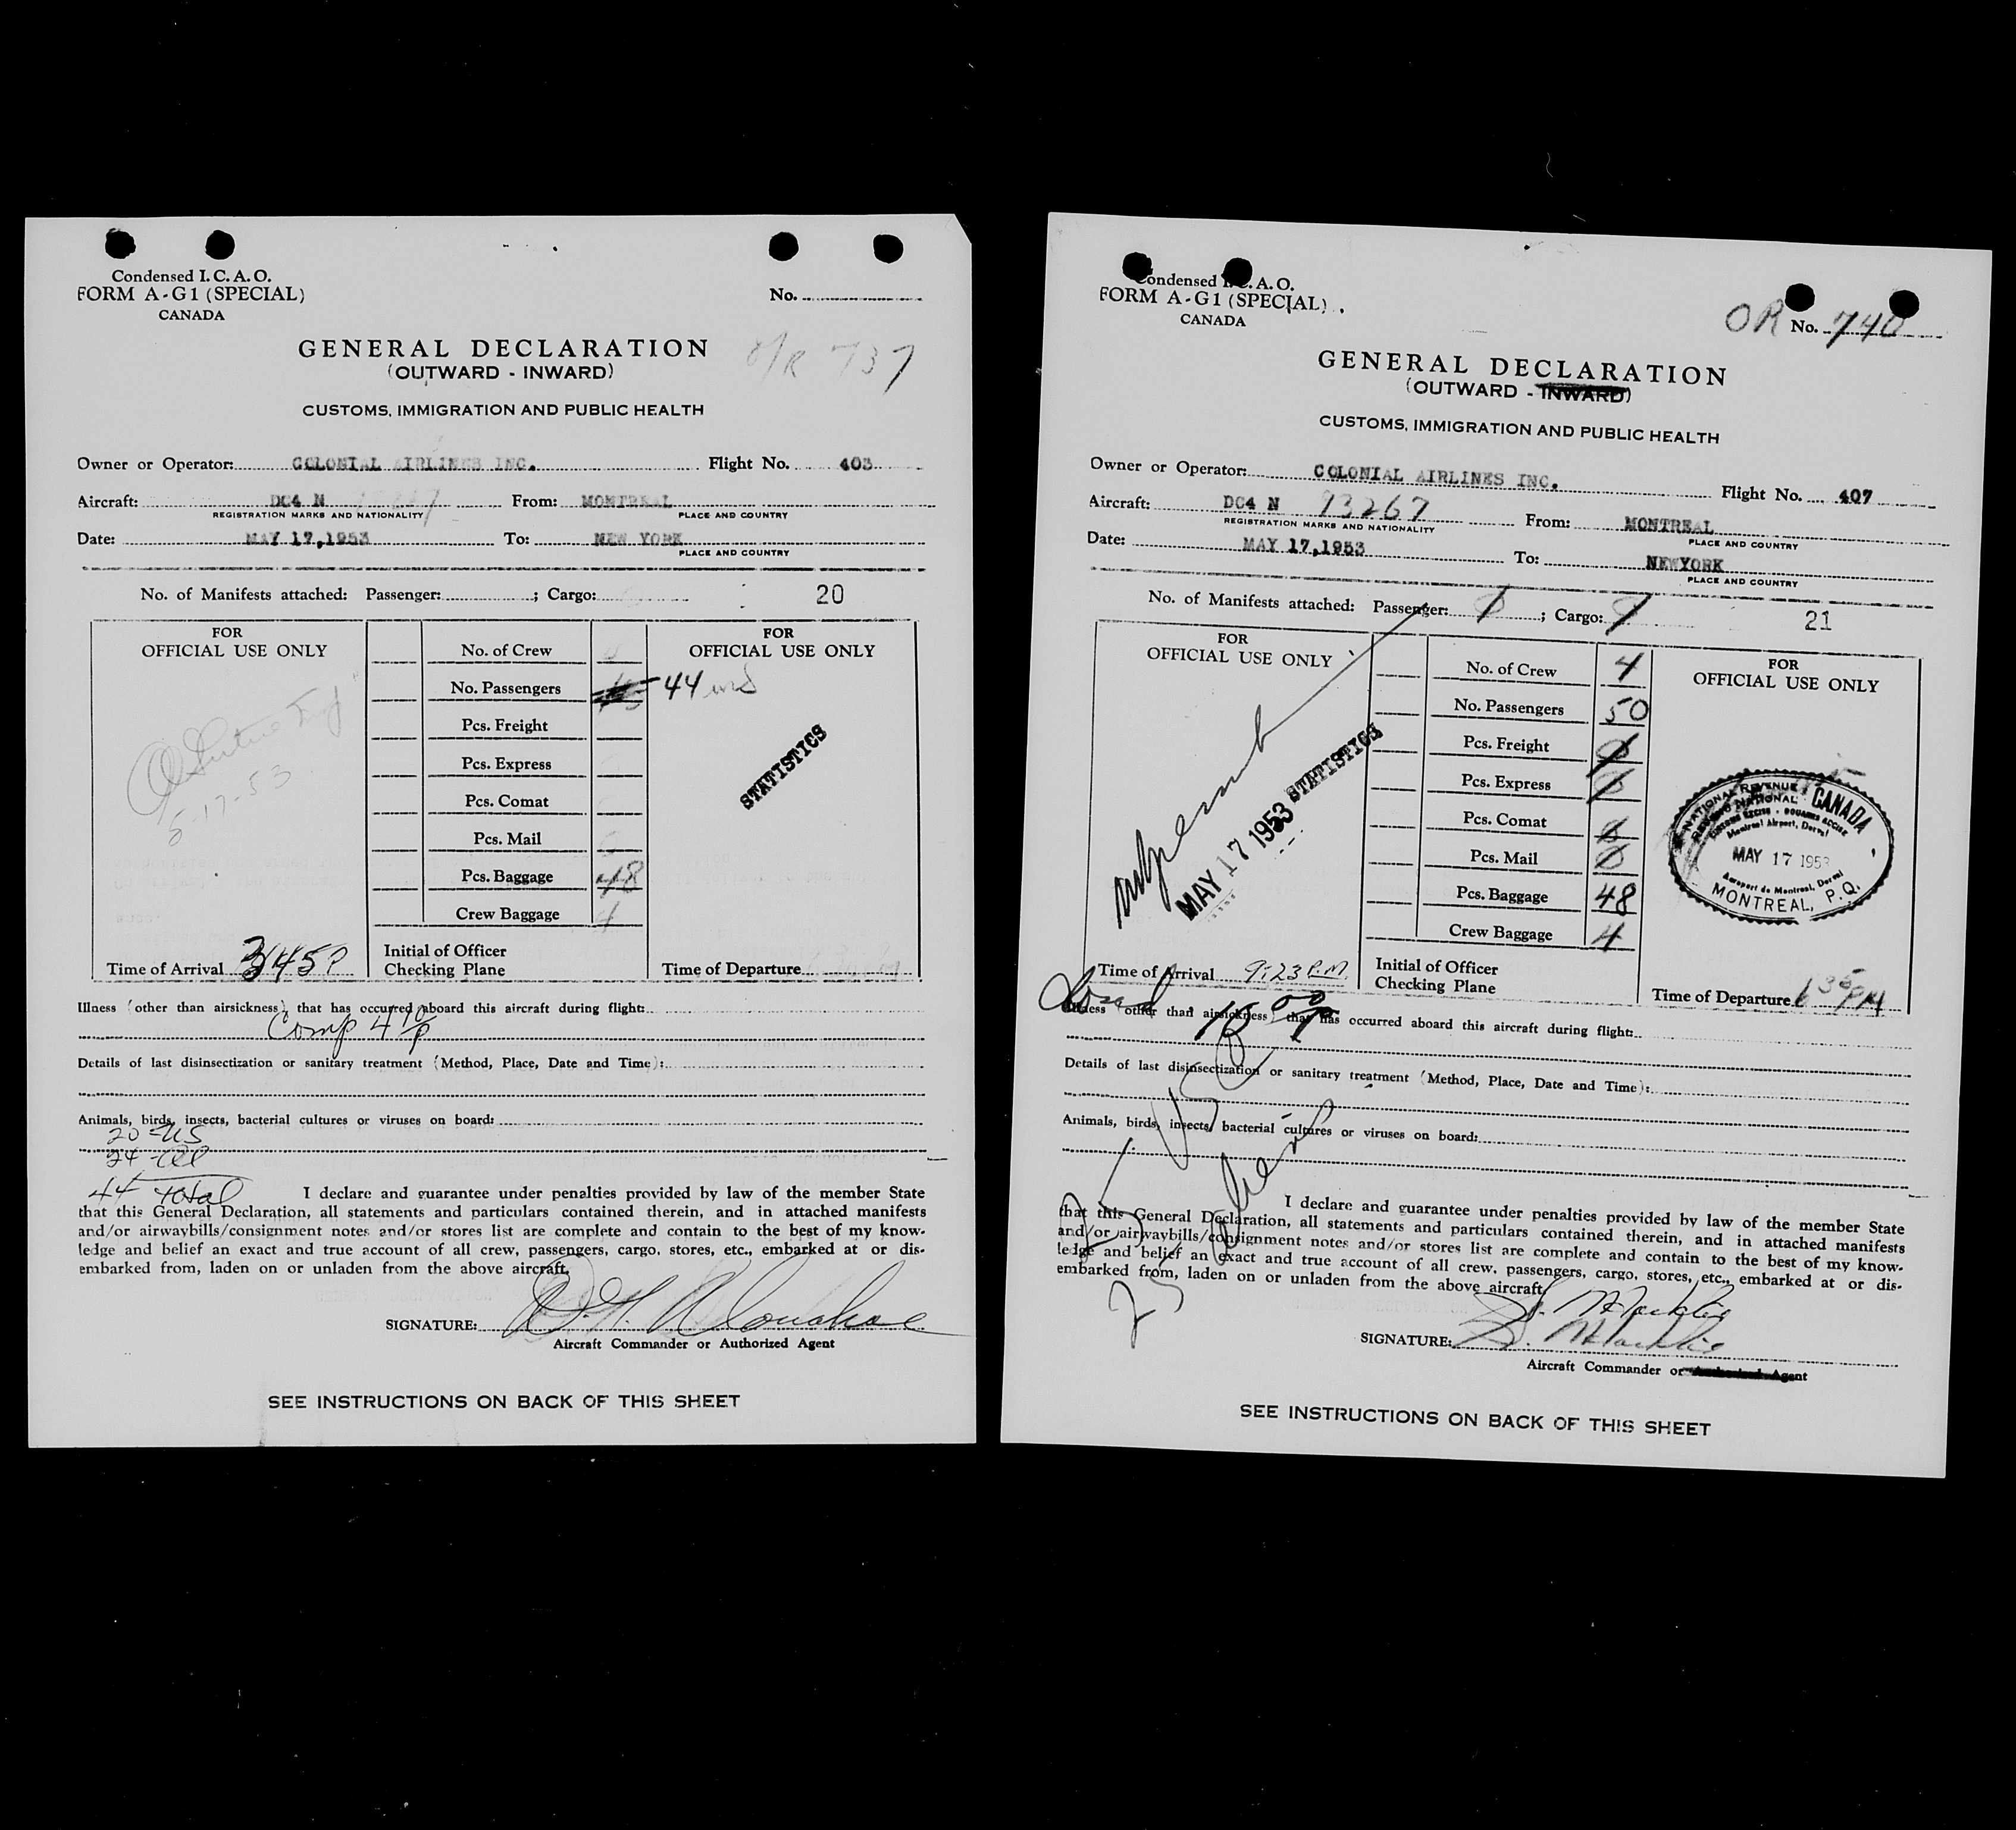 Condensed I.C.A.O.
FORM A-G1 (SPECIAL)
CANADA
No.
GENERAL DECLARATION
O/R 737
(OUTWARD - INWARD)
CUSTOMS, IMMIGRATION AND PUBLIC HEALTH
Owner or Operator: COLONIAL AIRLINES INC. Flight No. 403
Aircraft: DC4 N From: MONTREAL
REGISTRATION MARKS AND NATIONALITY PLACE AND COUNTRY
Date: MAY 17,1953 To: NEW YORK
PLACE AND COUNTRY
No. of Manifests attached: Passenger: ; Cargo: 20
FOR OFFICIAL USE ONLY
5-17-53
No. of Crew
No. Passengers 44
Pcs. Freight
Pcs. Express
Pcs. Comat
Pcs. Mail
Pcs. Baggage 48
Crew Baggage 4
FOR OFFICIAL USE ONLY
STATISTICS
Time of Arrival 345P
Initial of Officer
Checking Plane
Time of Departure
Illness (other than airsickness), that has occurred aboard this aircraft during flight:
Comp 4 10/P
Details of last disinsectization or sanitary treatment (Method, Place, Date and Time):
Animals, birds, insects, bacterial cultures or viruses on board:
20 - US
24 - al
44 total
I declare and guarantee under penalties provided by law of the member State
that this General Declaration, all statements and particulars contained therein, and in attached manifests
and/or airwaybills/consignment notes and/or stores list are complete and contain to the best of my know-
ledge and belief an exact and true account of all crew, passengers, cargo, stores, etc., embarked at or dis-
embarked from, laden on or unladen from the above aircraft.
SIGNATURE:
Aircraft Commander or Authorized Agent
SEE INSTRUCTIONS ON BACK OF THIS SHEET
Condensed I.C.A.O.
FORM A-G1 (SPECIAL)
CANADA
OR No. 740
GENERAL DECLARATION
(OUTWARD - INWARD)
CUSTOMS, IMMIGRATION AND PUBLIC HEALTH
Owner or Operator: COLONIAL AIRLINES INC. Flight No. 407
Aircraft: DC4 N 93267 From: MONTREAL
REGISTRATION MARKS AND NATIONALITY PLACE AND COUNTRY
Date: MAY 17,1953 To: NEWYORK
PLACE AND COUNTRY
No. of Manifests attached: Passenger: ; Cargo: 21
FOR OFFICIAL USE ONLY
MAY 17 1953 STATISTICS
No. of Crew 4
No. Passengers 50
Pcs. Freight 0
Pcs. Express 0
Pcs. Comat 0
Pcs. Mail 0
Pcs. Baggage 48
Crew Baggage 4
FOR OFFICIAL USE ONLY
NATIONAL REVENUE CANADA
REVENU NATIONAL
CUSTOMS EXCISE - DOUANES ACCISE
Montreal Airport, Dorval
MAY 17 1953
Aeroport de Montreal, Dorval
MONTREAL, P.Q.
Time of Arrival 9:23 P.M.
Initial of Officer
Checking Plane
Time of Departure 6 35 PM
Illness (other than airsickness), that has occurred aboard this aircraft during flight:
Details of last disinsectization or sanitary treatment (Method, Place, Date and Time):
Animals, birds, insects, bacterial cultures or viruses on board:
I declare and guarantee under penalties provided by law of the member State
that this General Declaration, all statements and particulars contained therein, and in attached manifests
and/or airwaybills/consignment notes and/or stores list are complete and contain to the best of my know-
ledge and belief an exact and true account of all crew, passengers, cargo, stores, etc., embarked at or dis-
embarked from, laden on or unladen from the above aircraft.
SIGNATURE:
Aircraft Commander or Authorized Agent
SEE INSTRUCTIONS ON BACK OF THIS SHEET